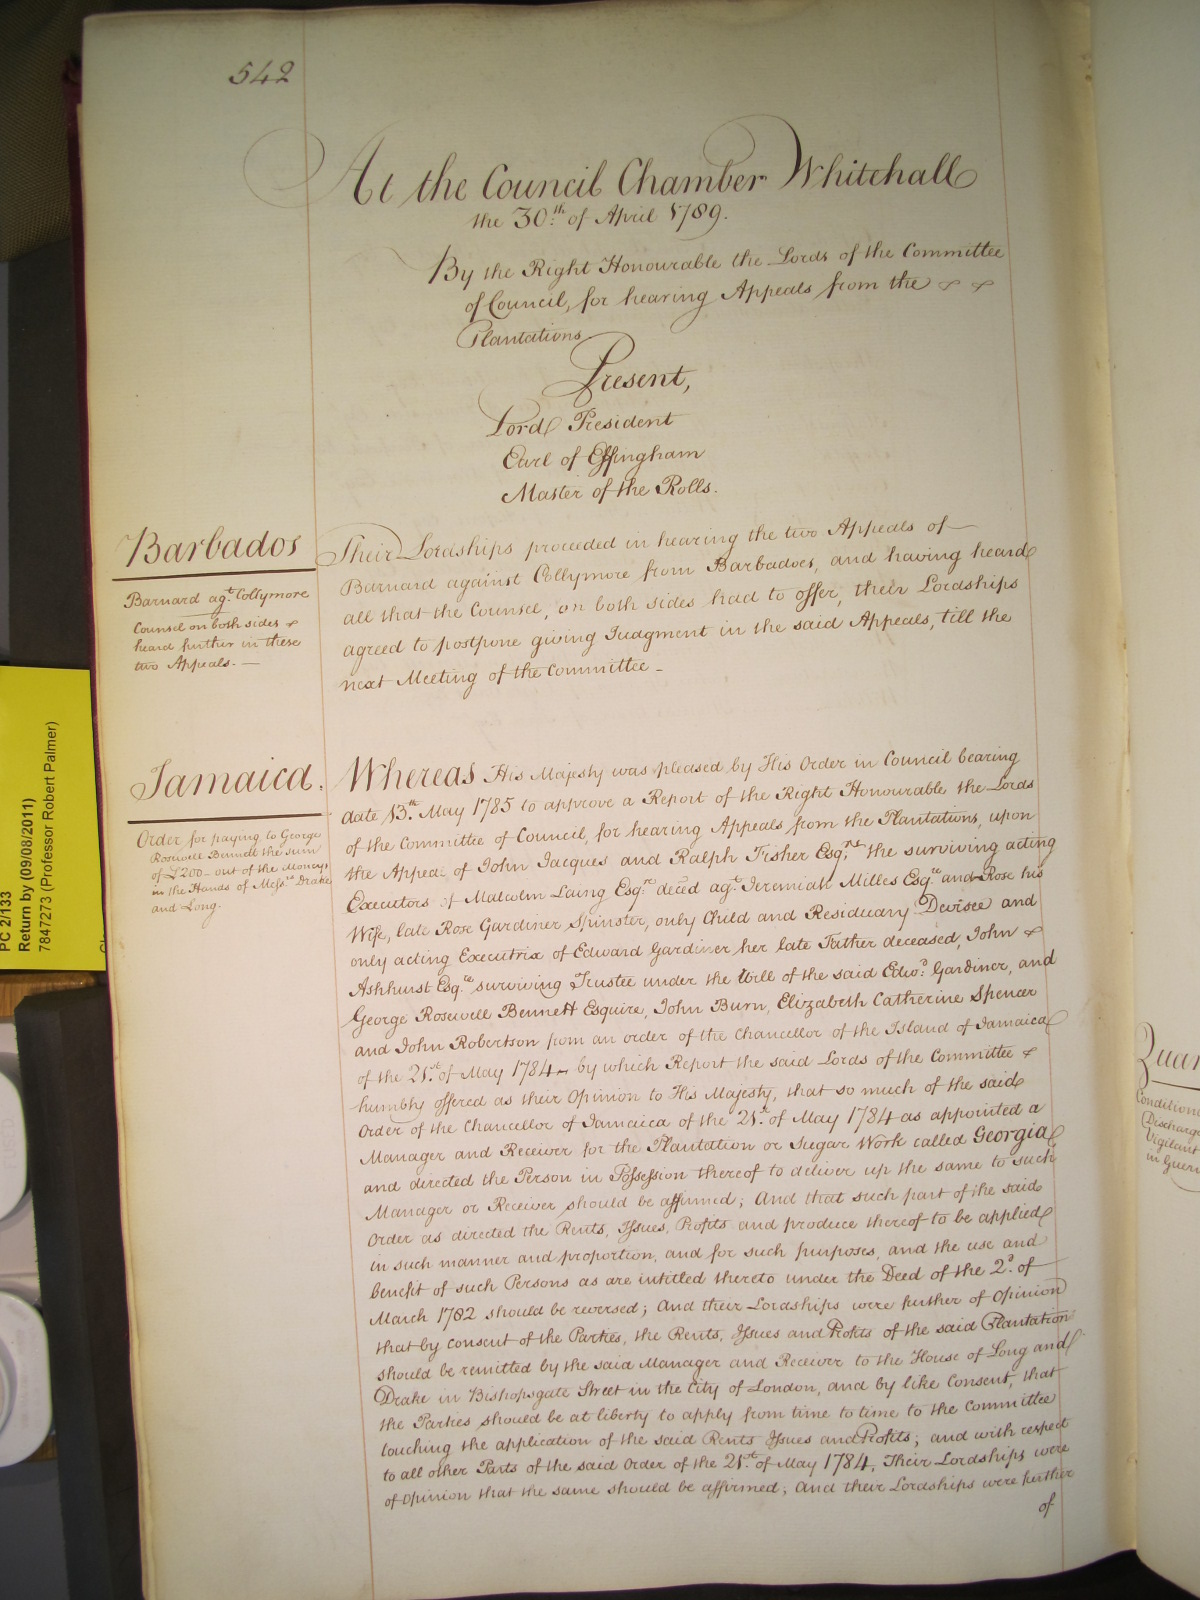 542
At the Council Chamber Whitehall
the 30th of April 1789.
By the Right Honourable the Lords of the Committee
of Council, for hearing Appeals from the
Plantations
Present,
Lord President
Earl of Effingham
Master of the Rolls.
Barbados
Barnard agt. Collymore
Counsel on both sides
heard further in these
two Appeals. —
Their Lordships proceeded in hearing the two Appeals of
Barnard against Collymore from Barbadoes, and having heard
all that the Counsel, on both sides had to offer, their Lordships
agreed to postpone giving Judgment in the said Appeals, till the
next Meeting of the Committee —
Jamaica.
Order for paying to George
Rosewell Bennett the sum
of £1200 — out of the Moneys
in the Hands of Messrs. Drake
and Long.
Whereas His Majesty was pleased by His Order in Council bearing
date 13th. May 1785 to approve a Report of the Right Honourable the Lords
of the Committee of Council, for hearing Appeals from the Plantations, upon
the Appeal of John Jacques and Ralph Fisher Esqrs. the surviving acting
Executors of Malcolm Laing Esqr. deced agt. Jeremiah Milles Esqre. and Rose his
Wife, late Rose Gardiner Spinster, only Child and Residuary Devisee and
only acting Executrix of Edward Gardiner her late Father deceased, John
Ashhurst Esqre. surviving Trustee under the Will of the said Edwd. Gardiner, and
George Rosewell Bennett Esquire, John Burn, Elizabeth Catherine Spencer
and John Robertson from an order of the Chancellor of the Island of Jamaica
of the 21st. of May 1784 — by which Report the said Lords of the Committee
humbly offered as their Opinion to His Majesty, that so much of the said
Order of the Chancellor of Jamaica of the 21st. of May 1784 as appointed a
Manager and Receiver for the Plantation or Sugar Work called Georgia
and directed the Person in Possession thereof to deliver up the same to such
Manager or Receiver should be affirmed; And that such part of the said
Order as directed the Rents, Issues, Profits and produce thereof to be applied
in such manner and proportion, and for such purposes, and the use and
benefit of such Persons as are intitled thereto under the Deed of the 2d. of
March 1782 should be reversed; And their Lordships were further of Opinion
that by consent of the Parties, the Rents, Issues and Profits of the said Plantation
should be remitted by the said Manager and Receiver to the House of Long and
Drake in Bishopsgate Street in the City of London, and by like Consent, that
the Parties should be at liberty to apply from time to time to the Committee
touching the application of the said Rents Issues and Profits; and with respect
to all other Parts of the said Order of the 21st. of May 1784, Their Lordships were
of Opinion that the same should be affirmed; And their Lordships were further
of
PC 2/133
Return by (09/08/2011)
7847273 (Professor Robert Palmer)
Discharge
Vigilant